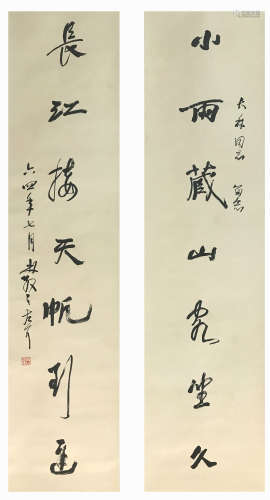 小雨藏山客坐久
大林同志 留念
長江接天帆到遲
六四年七月林散之左耳